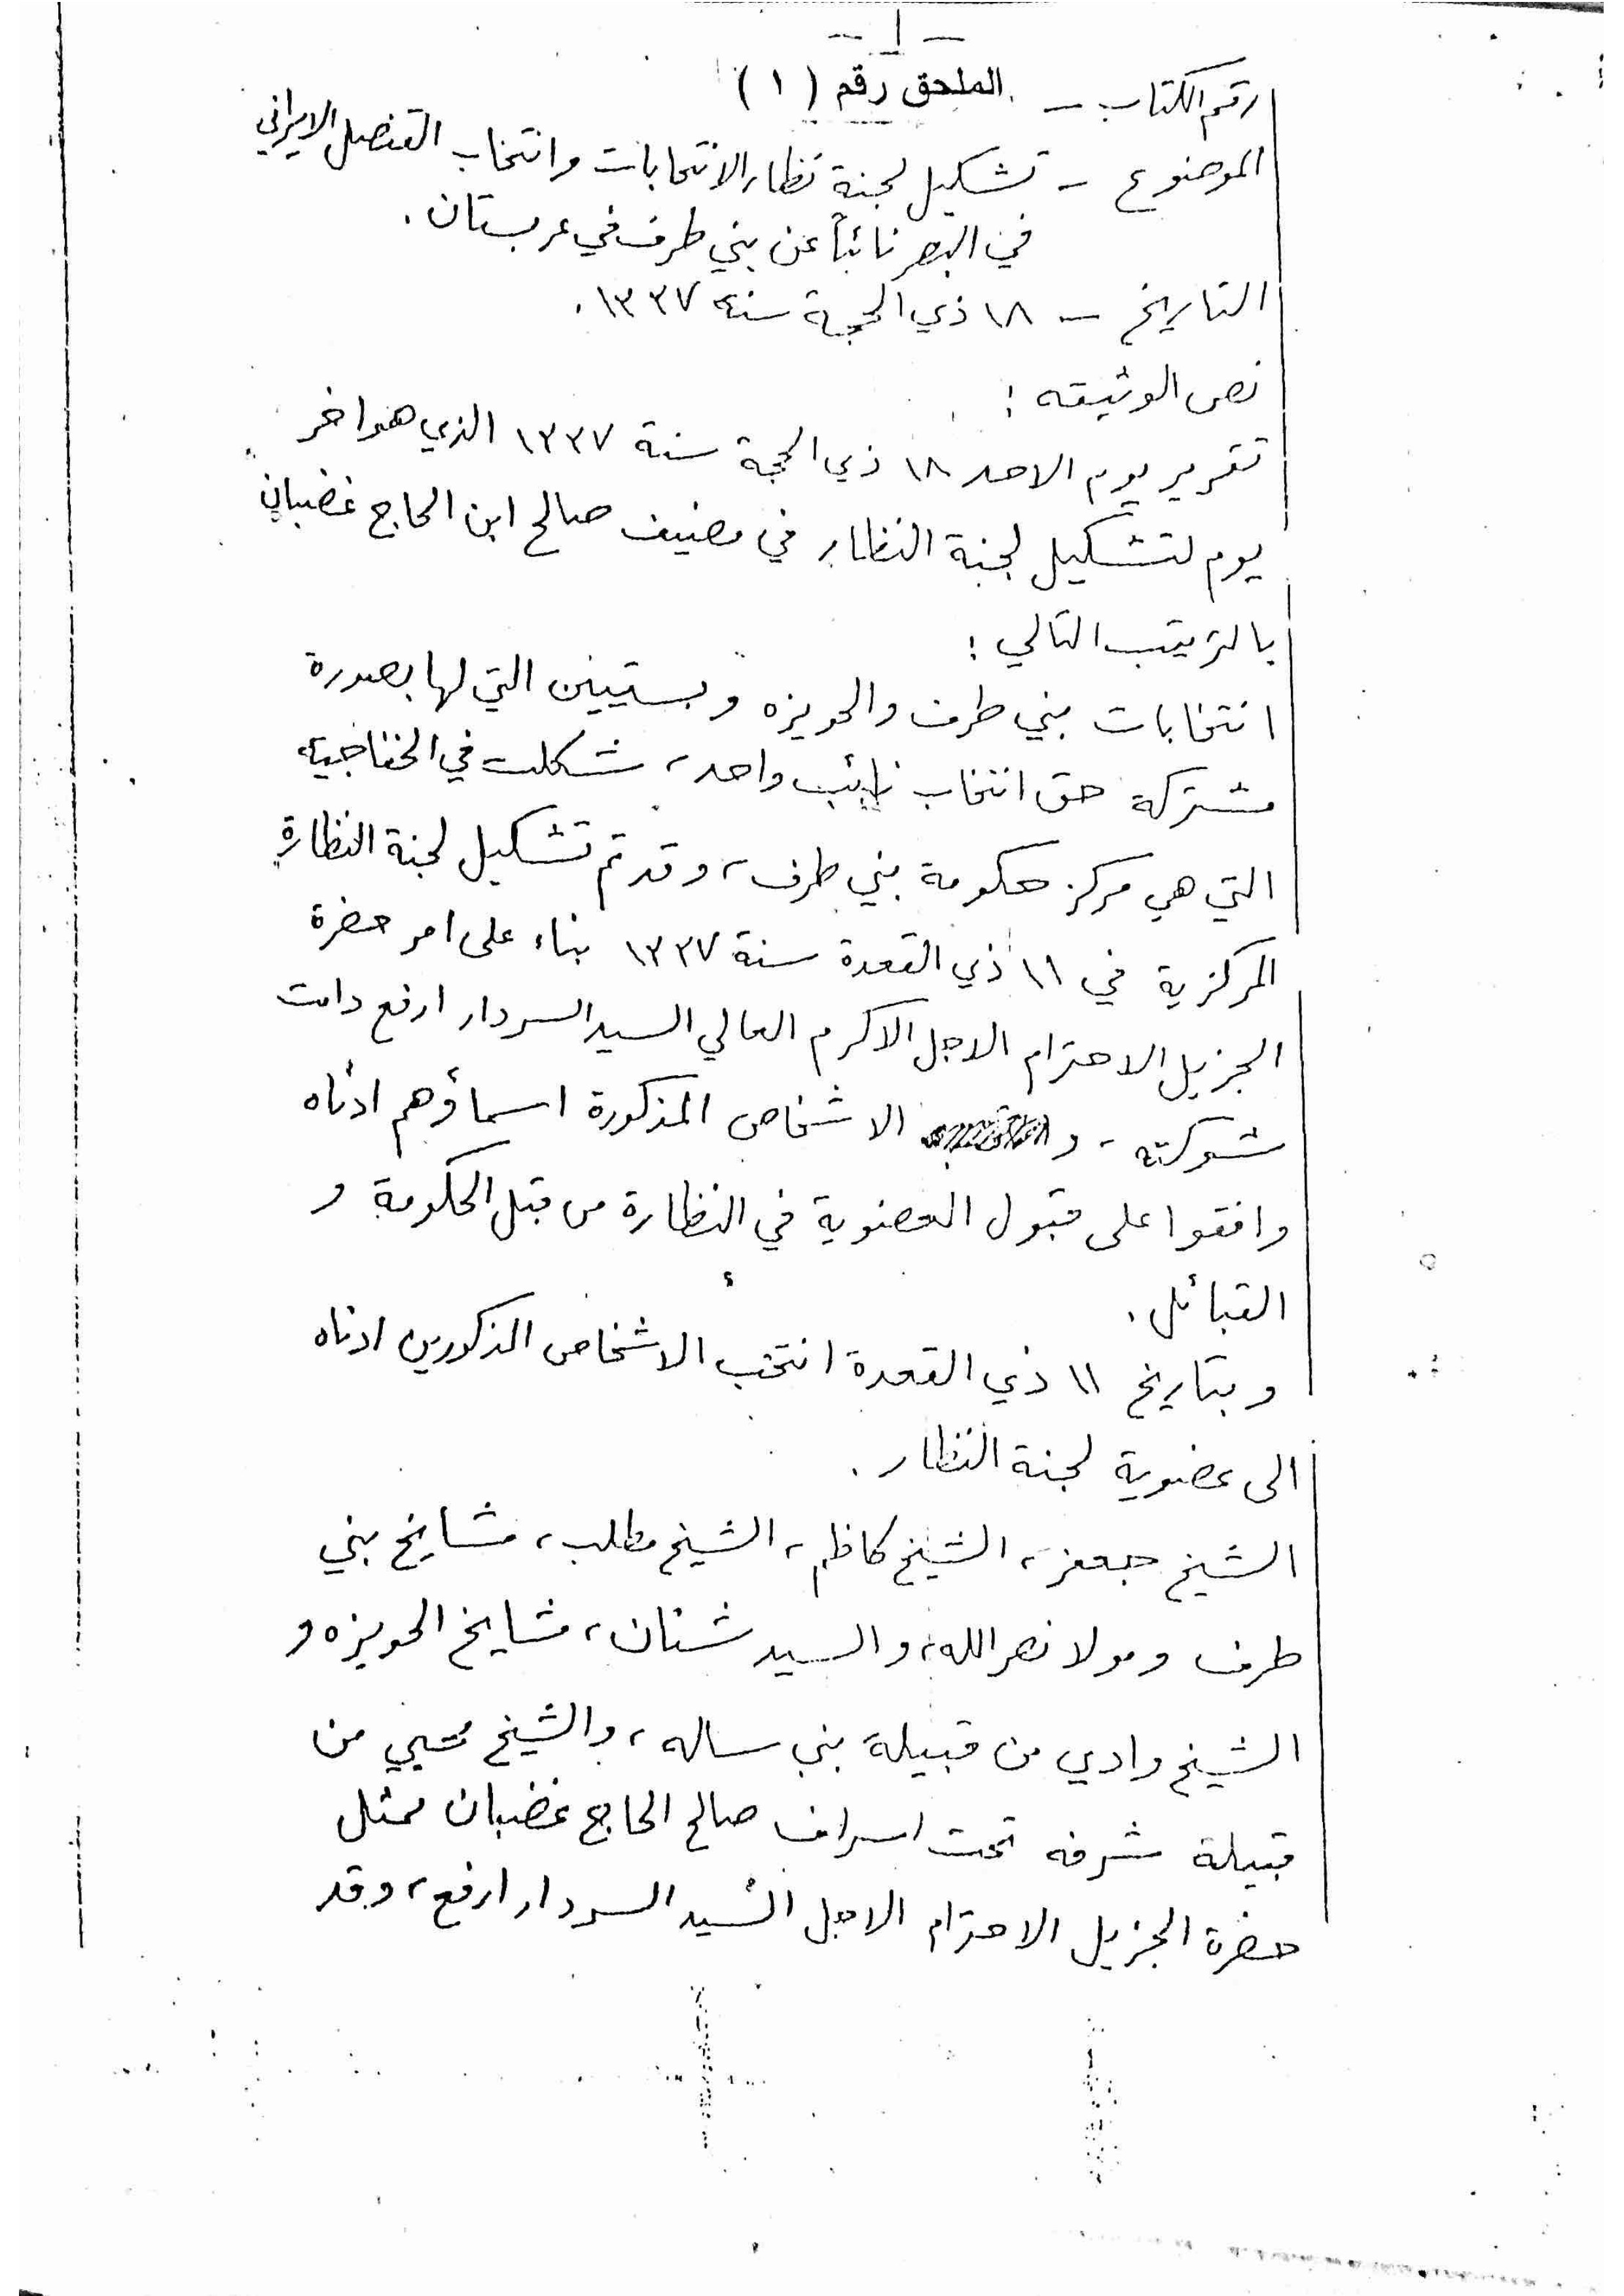 - ١ -
الملحق رقم (١)
رقم الكتاب -
الموضوع - تشكيل لجنة نظار الانتخابات وانتخاب القنصل الايراني
في البصر نائباً عن بني طرف في عربستان.
التاريخ - ١٨ ذي الحجة سنة ١٣٣٧.
نص الوثيقه :
تقرير يوم الاحد ١٨ ذي الحجة سنة ١٣٣٧ الذي هو اخر
يوم لتشكيل لجنة النظار في مضيف صالح ابن الحاج غضبان
بالترتيب التالي :
انتخابات بني طرف والحويزه وبستيين التي لها بصورة
مشتركة حق انتخاب نائب واحد، شكلت في الخفاجيه
التي هي مركز حكومة بني طرف، وقد تم تشكيل لجنة النظارة
المركزية في ١١ ذي القعدة سنة ١٣٣٧ بناء على امر حضرة
الجزيل الاحترام الاجل الاكرم العالي السيد السردار ارفع دامت
شوكته، و الاشخاص المذكورة اسماؤهم ادناه
وافقوا على قبول العضوية في النظارة من قبل الحكومة و
القبائل.
وبتاريخ ١١ ذي القعدة انتخب الاشخاص المذكورين ادناه
الى عضوية لجنة النظار.
الشيخ جعفر، الشيخ كاظم، الشيخ مطلب، مشايخ بني
طرف ومولا نصر الله، والسيد شنان، مشايخ الحويزه و
الشيخ وادي من قبيلة بني ساله، والشيخ محيي من
قبيلة شرفه تحت اسراف صالح الحاج غضبان ممثل
حضرة الجزيل الاحترام الاجل السيد السردار ارفع، وقد